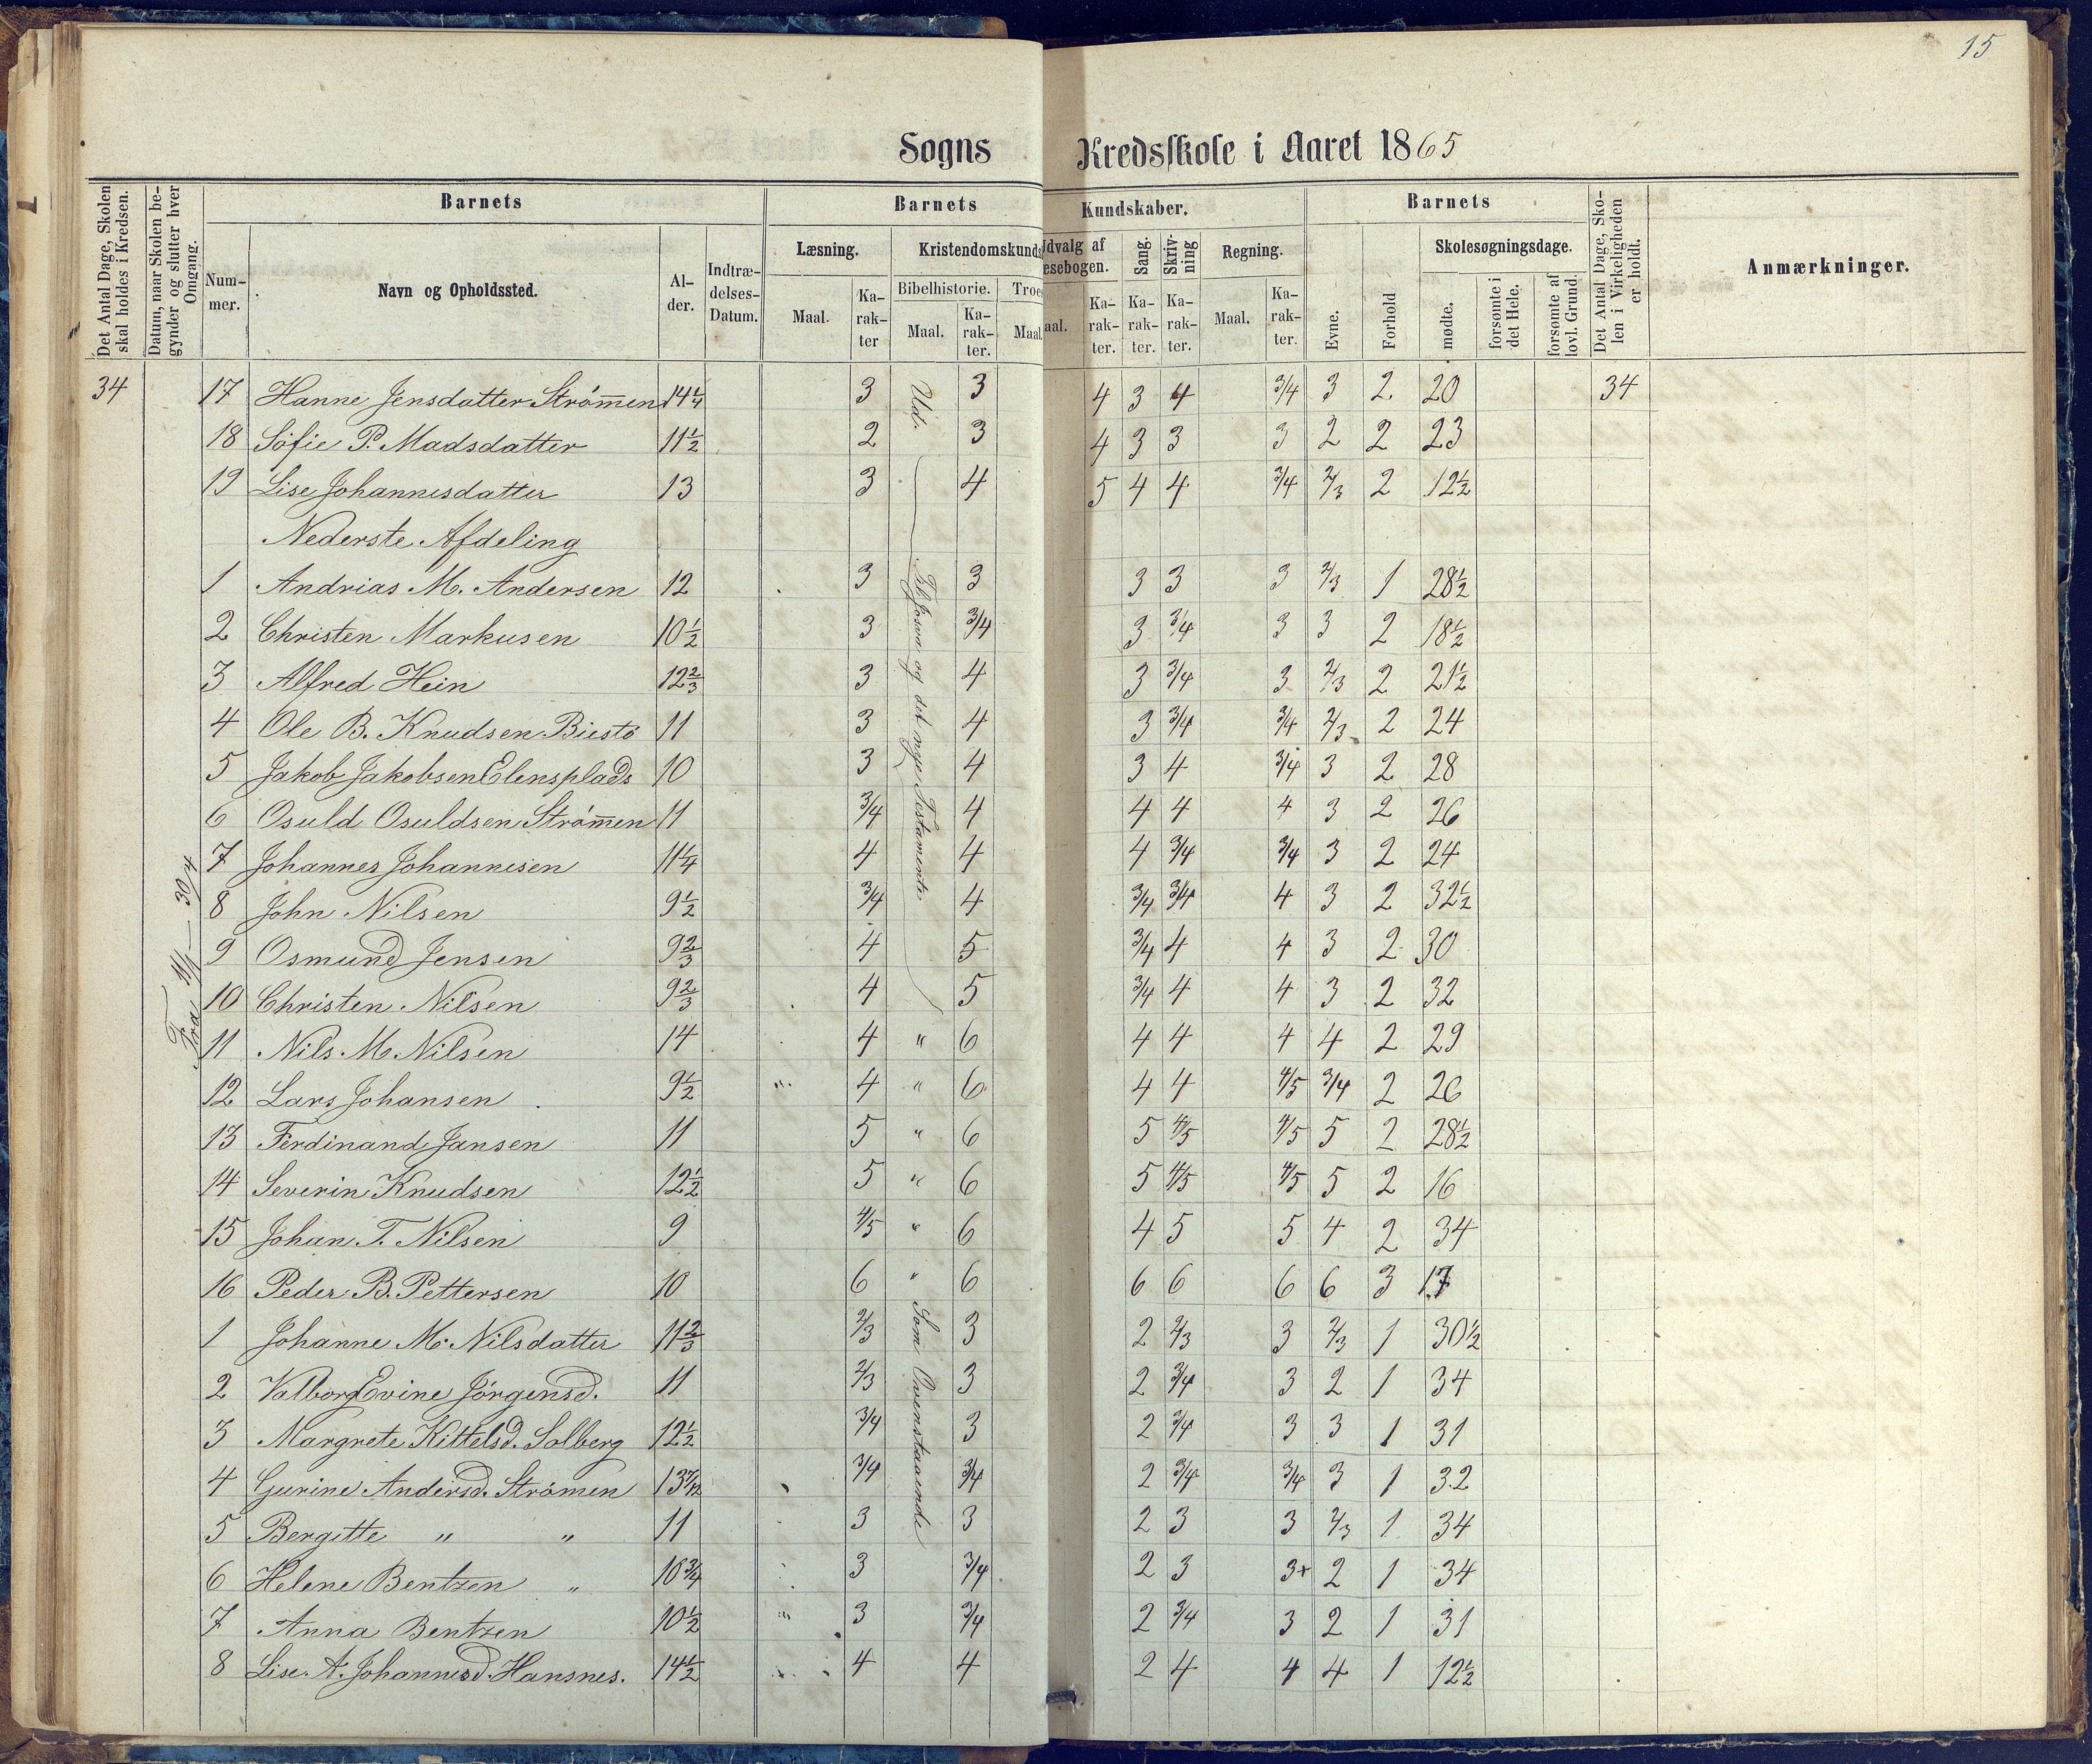 15
Sogns Kredsskole i Aaret 1865
Det Antal Dage, Skolen skal holdes i Kredsen.
Datum, naar Skolen begynder og slutter hver Omgang.
Barnets
Nummer.
Navn og Opholdssted.
Alder.
Indtrædelses-Datum.
Barnets Kundskaber.
Læsning.
Maal.
Karakter
Kristendomskunds
Bibelhistorie.
Maal.
Karakter.
Troes
Maal
Udvalg af
æsebogen.
aal.
Karakter.
Sang.
Karakter.
Skrivning
Karakter.
Regning.
Maal.
Karakter.
Barnets
Evne.
Forhold
Skolesøgningsdage.
mødte.
forsømte i det Hele.
forsømte af lovl. Grund.
Det Antal Dage, Skolen i Virkeligheden er holdt.
Anmærkninger.
34 17 Hanne Jensdatter Strömmen 14¼ 3 Ud. 3 4 3 4 3/4 3 2 20 34
18 Sofie P. Madsdatter 11½ 2 3 4 3 3 3 2 2 23
19 Lise Johannesdatter 13 3 4 5 4 4 3/4 2/3 2 12½
Nederste Afdeling
Til Josva og det nye Testamente
1 Andrias M. Andersen 12 3 3 3 3 3 2/3 1 28½
2 Christen Markusen 10½ 3 3/4 3 3/4 3 3 2 18½
3 Alfred Hein 12⅔ 3 4 3 3/4 3 2/3 2 21½
4 Ole B. Knudsen Biestö 11 3 4 3 3/4 3/4 2/3 2 24
5 Jakob Jakobsen Elensplads 10 3 4 3 4 3/4 3 2 28
6 Osuld Osuldsen Strömmen 11 3/4 4 4 4 4 3 2 26
7 Johannes Johannesen 11¼ 4 4 4 3/4 3/4 3 2 24
8 John Nilsen 9½ 3/4 4 3/4 3/4 4 3 2 32½
9 Osmund Jensen 9⅔ 4 5 3/4 4 4 3 2 30
10 Christen Nilsen 9⅔ 4 5 3/4 4 4 3 2 32
Fra 11/1 - 30/4
11 Nils M. Nilsen 14 4 " 6 4 4 4 4 2 29
12 Lars Johansen 9½ " 4 " 6 4 4 4/5 3/4 2 26
13 Ferdinand Jansen 11 5 " 6 5 4/5 4/5 5 2 28½
14 Severin Knudsen 12½ 5 " 6 5 4/5 4/5 5 2 16
15 Johan T. Nilsen 9 4/5 " 6 4 5 5 4 2 34
16 Peder B. Pettersen 10 6 " 6 6 6 6 6 3 17
Som Ovenstaaende
1 Johanne M. Nilsdatter 11⅔ 2/3 3 2 2/3 3 2/3 1 30½
2 Valborg Evine Jörgensd. 11 2/3 3 2 3/4 3 2 1 34
3 Margrete Kittelsd. Solberg 12½ 3/4 3 2 3/4 3 3 1 31
4 Gurine Andersd. Strömen 13 7/12 3/4 3/4 2 3/4 3/4 3 1 32
5 Bergitte " " 11 3 3 2 3 3 2/3 1 34
6 Helene Bentzen " 10¾ 3 3/4 2 3 3+ 2 1 34
7 Anna Bentzen 10½ " 3 3/4 2 3/4 3 2 1 31
8 Lise A. Johannesd. Hansnes. 14½ 4 4 2 4 4 4 1 12½